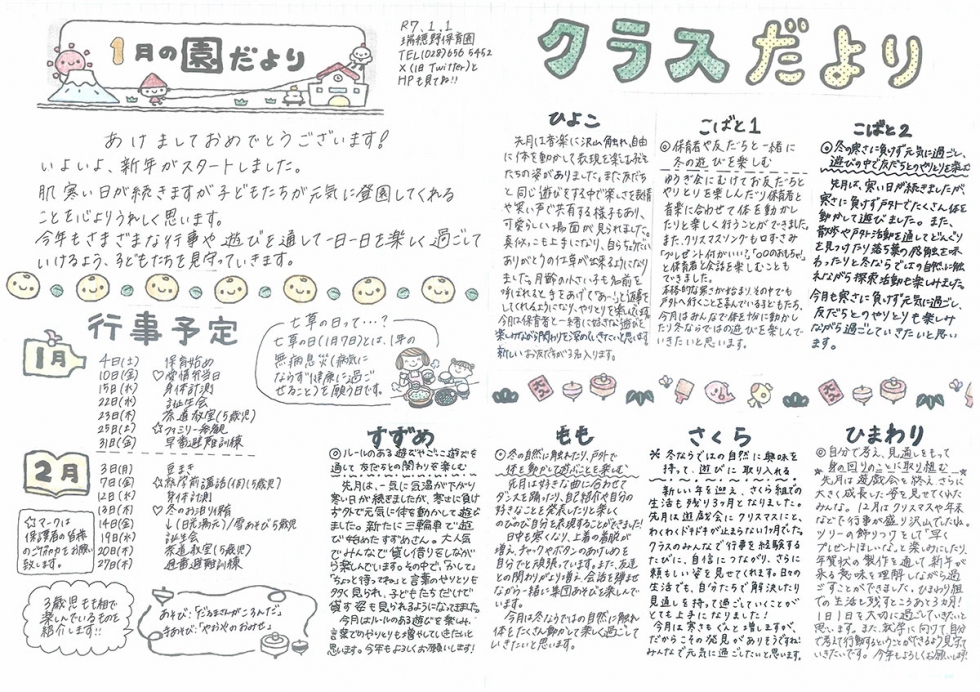 1月の園だより
R7.1.1
瑞穂野保育園
TEL(028)656 5452
X(旧Twitter)と
HPも見てね!!
あけましておめでとうございます!
いよいよ、新年がスタートしました。
肌寒い日が続きますが子どもたちが元気に登園してくれる
ことを心よりうれしく思います。
今年もさまざまな行事や遊びを通して一日一日を楽しく過ごして
いけるよう、子どもたちを見守っていきます。
行事予定
1月
4日(土) 保育始め
10日(金) ♡愛情弁当日
15日(水) 身体計測
22日(水) 誕生会
23日(木) 茶道教室(5歳児)
25日(土) ☆ファミリー参観
31日(金) 早番避難訓練
七草の日って…?
七草の日(1月7日)とは、1年の
無病息災(病気に
ならず健康に過ご
せること)を願う日です。
2月
3日(月) 豆まき
7日(金) ☆就学前講話(5歳児)
12日(水) 身体計測
13日(木) ♡冬のお泊り保育
14日(金) ↓(日光湯元)/雪あそび5歳児
19日(水) 誕生会
20日(木) 茶道教室(5歳児)
27日(木) 遅番避難訓練
☆マークは
保護者の皆様
のご協力をお願い
致します。
3歳児もも組で
楽しんでいるものを
紹介します!!
あそび:「だるまさんがころんだ」
手あそび:「やおやのおみせ」
クラスだより
ひよこ
先月は音楽に沢山触れ、自由
に体を動かして表現を楽しむ子ど
もたちの姿がありました。また友だち
と同じ遊びをする中で楽しさを表情
や笑い声で共有する様子もあり、
可愛らしい場面が見られました。
真似っこも上手になり、自らちょうだい
ありがとうの仕草が出来るようになり
ました。月齢の小さい子も名前を
呼ばれると手をあげて「あー!」と返事を
してくれるようになり、やりとりを楽しむ
今月は保育者と一緒に好きな遊びを
楽しみながら関わりを深めていきたいと思います。
新しいお友だちが3名入ります。
こばと1
◎保育者や友だちと一緒に
冬の遊びを楽しむ
ゆうぎ会にむけてお友だちと
やりとりを楽しんだり保育者と
音楽に合わせて体を動かし
たりと楽しく行うことができました。
また、クリスマスソングも口ずさみ
「プレゼント何がいい?」「○○のおもちゃ」
と保育者と会話を楽しむことも
できました。
本格的な寒さが始まり、その中でも
戸外へ行くことを喜んでいる子どもたち、
今月はみんなで体を十分に動かし
たり冬ならではの遊びを楽しんで
いきたいと思います。
こばと2
◎冬の寒さに負けず元気に過ごし、
遊びの中で友だちとのやりとりを楽しむ
先月は、寒い日が続きましたが、
寒さに負けず戸外でたくさん体を
動かして遊びました。また、
散歩や戸外活動を通してどんぐり
を見つけたり落ち葉の感触を味
わったりと冬ならではの自然に触
れながら探索活動も楽しみました。
今月も寒さに負けず元気に過ごし、
友だちとのやりとりも楽しみ
ながら過ごしていきたいと思い
ます。
すずめ
◎ルールのある遊びやごっこ遊びを
通して友だちとの関わりを楽しむ
先月は、一気に気温が下がり
寒い日が続きましたが、寒さに負け
ず外で元気に体を動かして遊び
ました。新たに三輪車で遊
び始めたすずめさん。大人気
でみんなで貸し借りをしながら
楽しんでいます。その中で、「かして」
「ちょっと待っててね」と言葉のやりとりも
多く見られ、子どもたちだけで
貸す姿も見られるようになってきました。
今月はルールのある遊びを楽しみ、
言葉でのやりとりも増やしていきたいと
思います。今年もよろしくお願いします!
もも
◎冬の自然に触れたり、戸外で
体を動かして遊ぶことを楽しむ
先月は好きな曲に合わせて
ダンスを踊ったり、自己紹介や自分の
好きなことを発表したりと楽しく
のびのび自分を表現することができました!
日中も寒くなり、上着の着脱が
増え、チャックやボタンのあけしめを
自分でと頑張っています。また、友達
との関わりがより増え、会話を弾ませ
ながら一緒に集団あそびも楽しんで
います。
今月は冬ならではの自然に触れ
体をたくさん動かして楽しく過ごして
いきたいと思います。
さくら
※冬ならではの自然に興味を
持って、遊びに取り入れる
新しい年を迎え、さくら組での
生活も残り3ヶ月となりました。
先月は遊戯会にクリスマスにと、
わくわくドキドキが止まらない1ヶ月でした。
クラスのみんなで行事を経験する
たびに、自信につながり、さらに
頼もしい姿を見せてくれます。日々の
生活でも、自分たちで解決したり
見通しを持って過ごしていくことが
とても上手になりました!
今月は寒さもぐんと増しますが、
だからこその発見がありそうですね!
みんなで元気に過ごしたいと思います。
ひまわり
◎自分で考え、見通しをもって
身の回りのことに取り組む
先月は遊戯会を終え、さらに
大きく成長した姿を見せてくれた
みんな。12月はクリスマスや年末
などで行事が盛り沢山でしたね。
ツリーの飾りつけをして「早く
プレゼントほしいな」と楽しみにしたり、
年賀状の製作を通して新年が
来る意味を理解しながら過
ごすことができました。ひまわり組
での生活も残すところあと3カ月!
1日1日を大切に過ごしていきたいと
思います。また、就学に向けて自分
で考えて行動するということができるよう見守って
いきたいです。今年もよろしくお願いします!